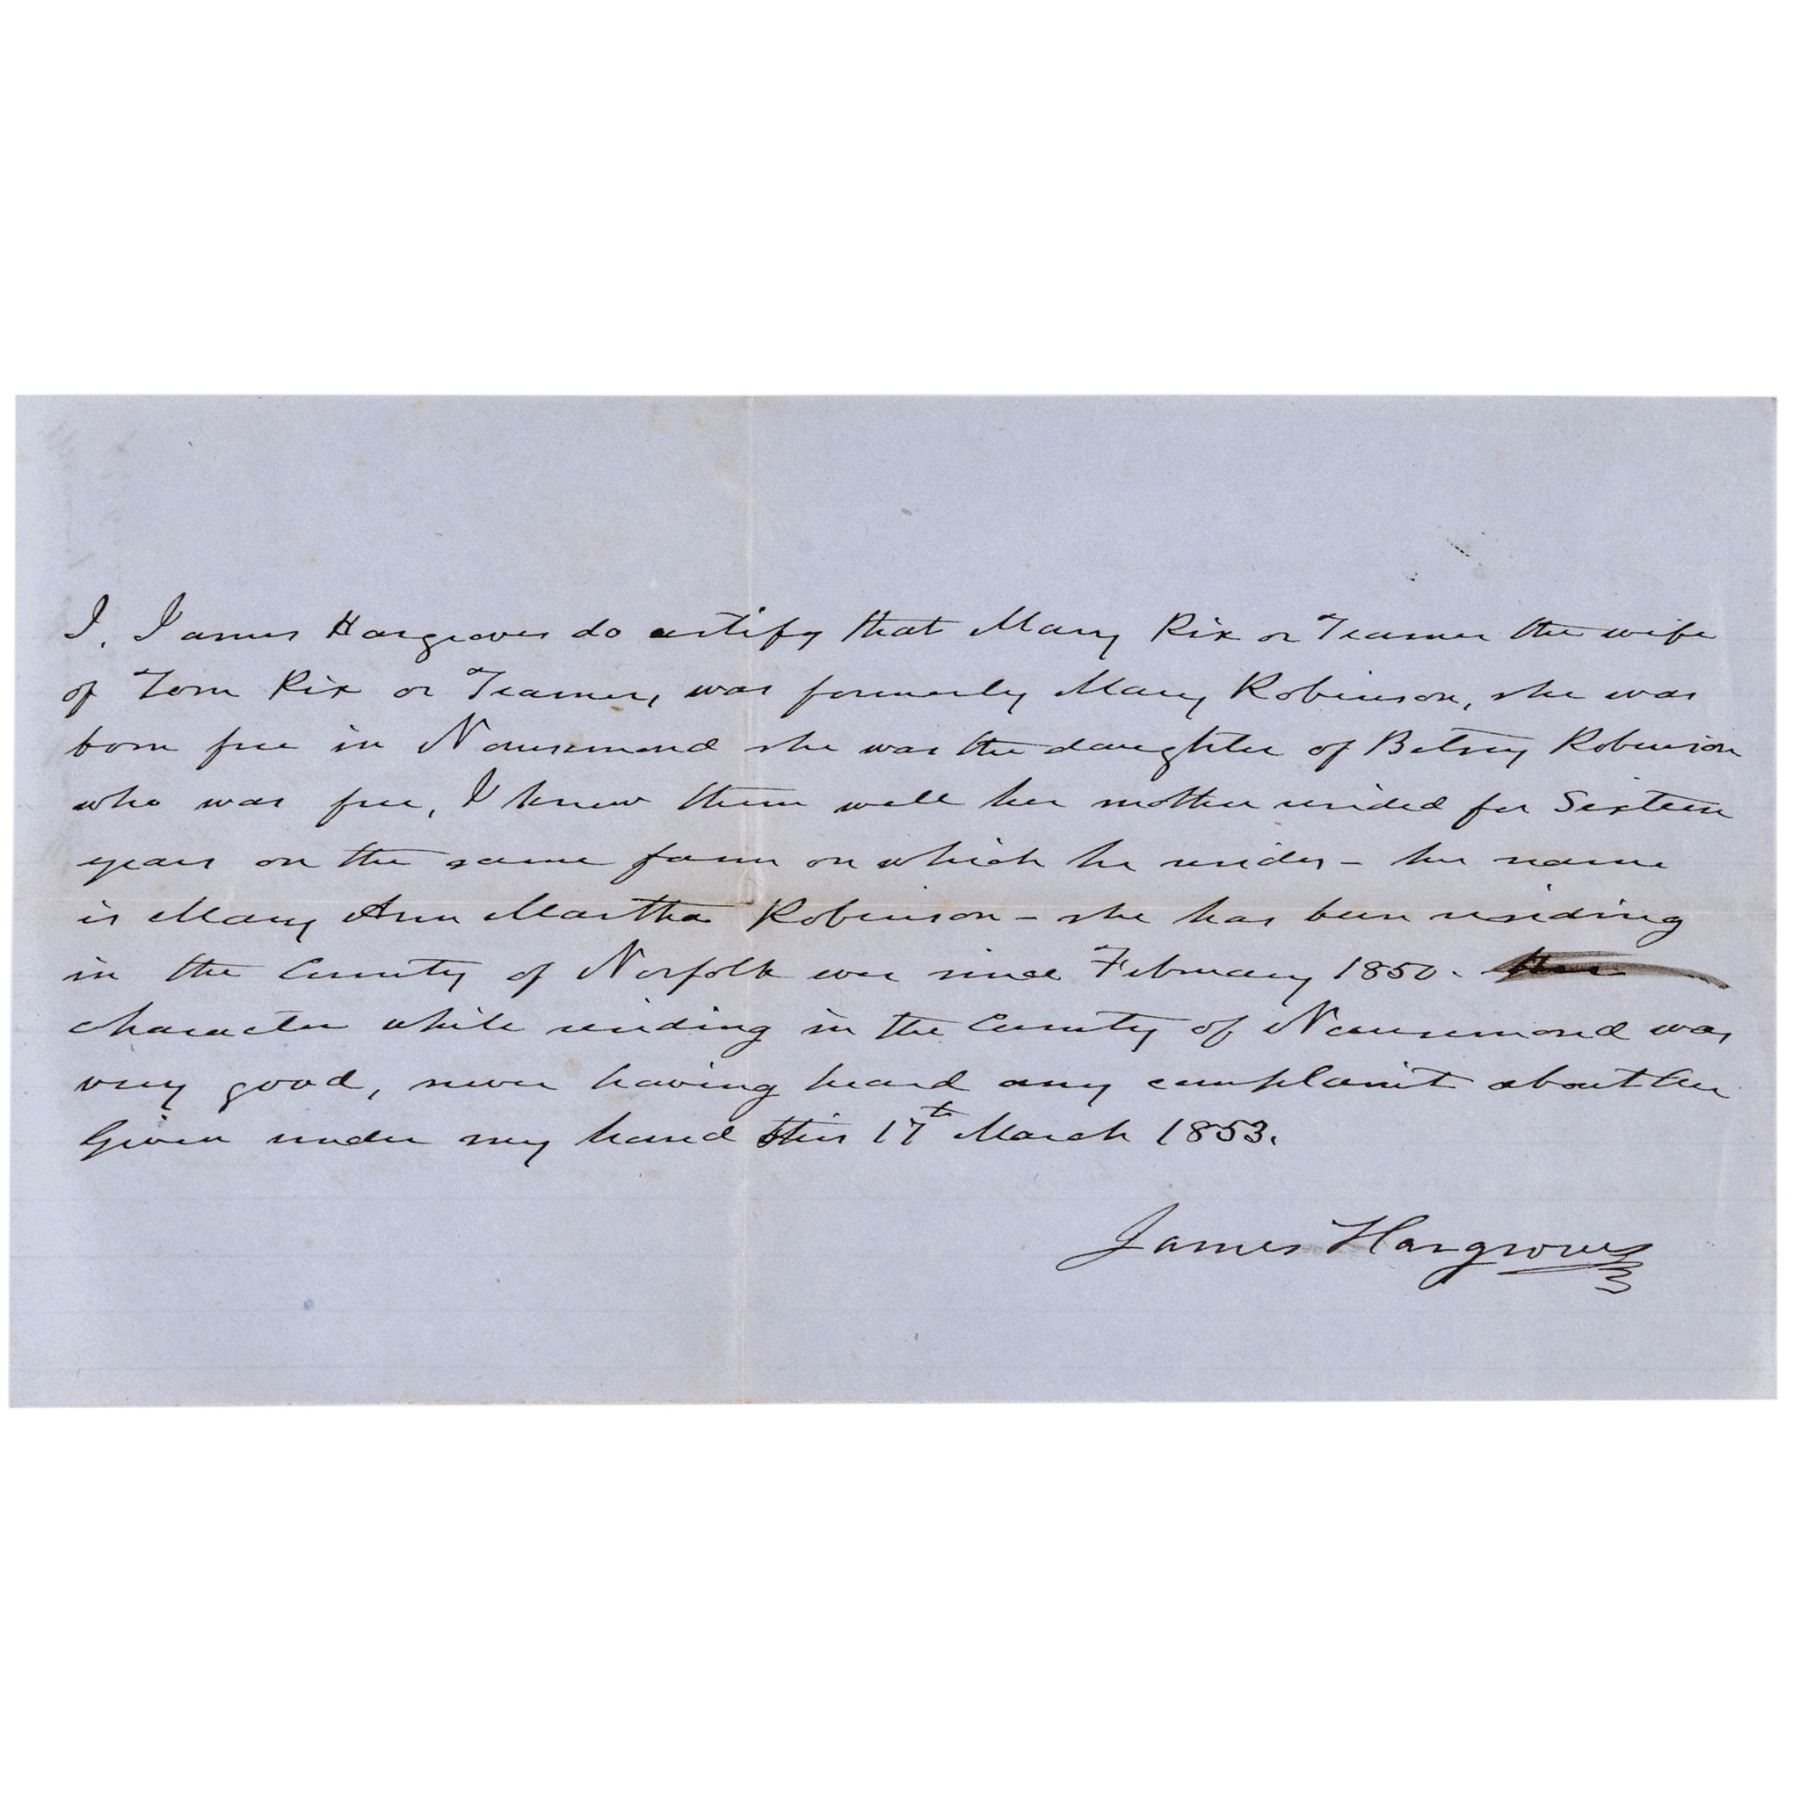 I, James Hargroves do certify that Mary Rix or Teamer the wife
of Tom Rix or Teamer, was formerly Mary Robinson, she was
born free in Nansemond she was the daughter of Betsey Robinson
who was free, I knew them well her mother resided for Sixteen
years on the same farm on which he resides - her name
is Mary Ann Martha Robinson - she has been residing
in the County of Norfolk ever since February 1850. Her
character while residing in the County of Nansemond was
very good, never having heard any complaint about her
Given under my hand this 17th March 1853.
James Hargroves